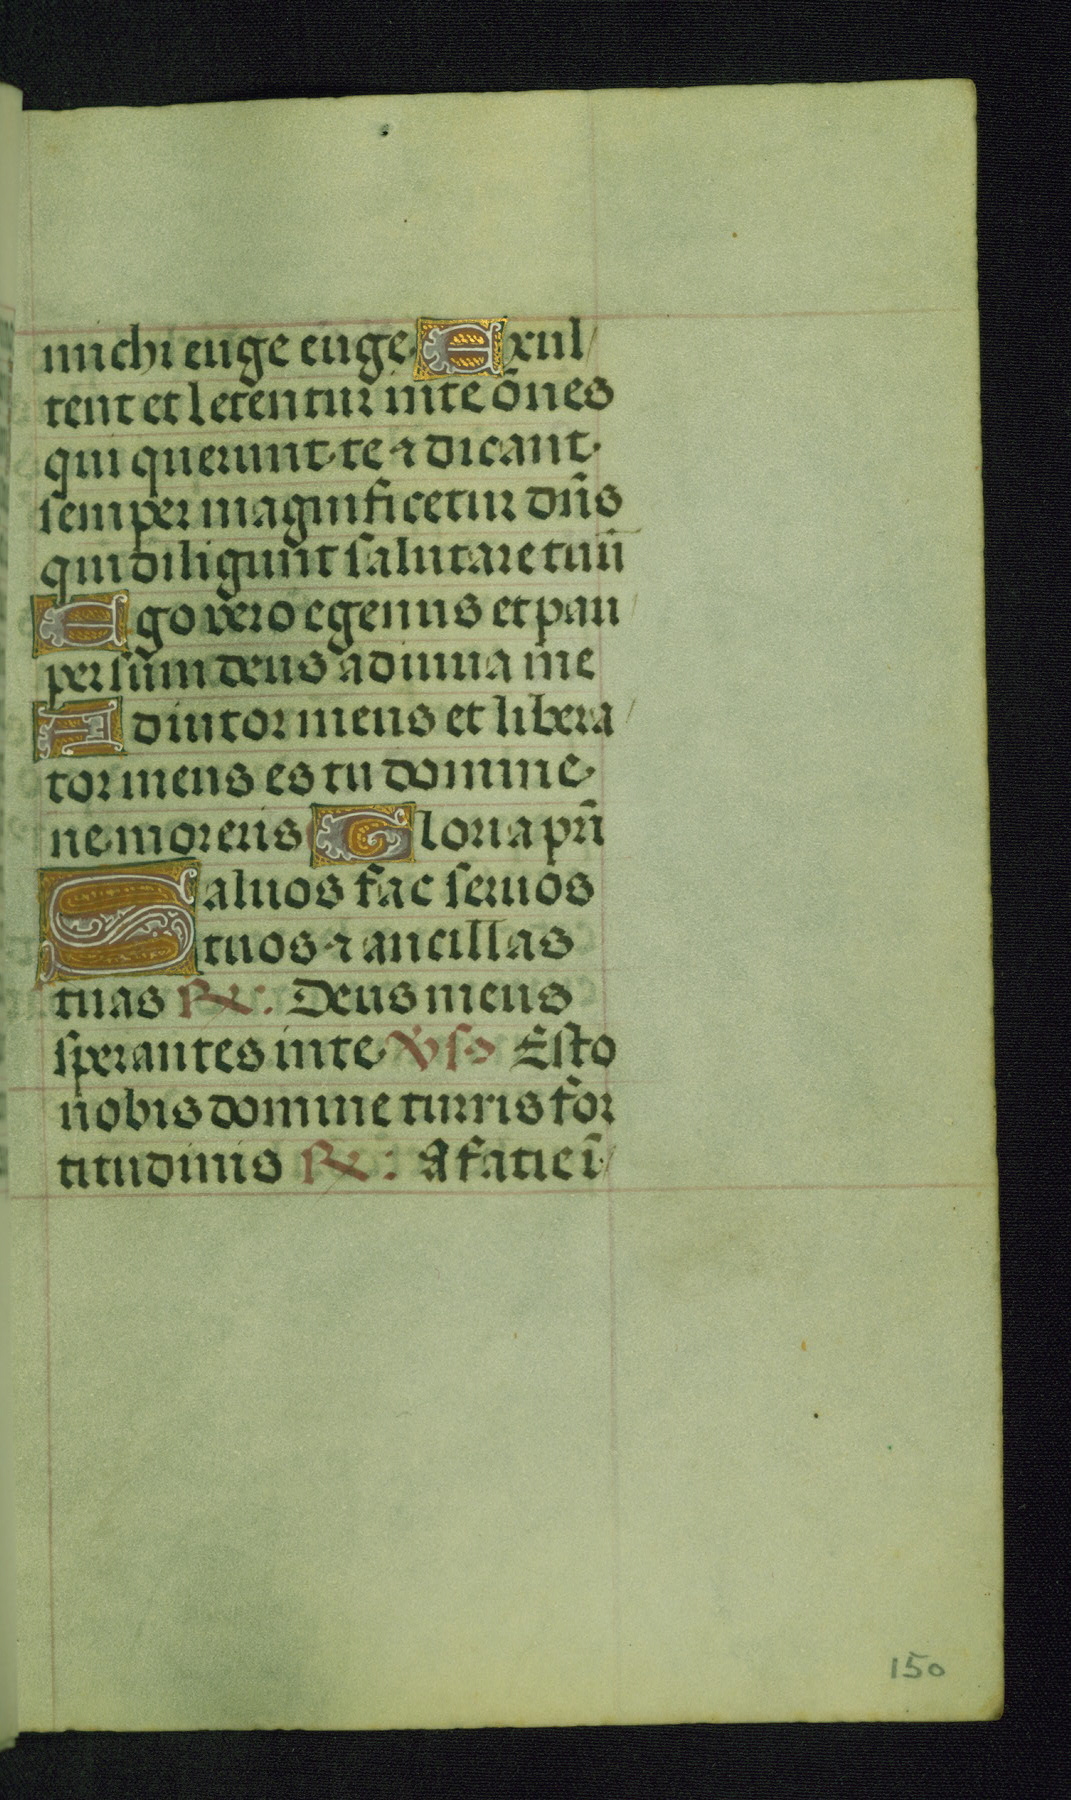 michi euge euge. Exul
tent et letentur in te om̄nes
qui querunt te ⁊ dicant.
semper magnificetur dn̄s
qui diligunt salutare tuū
Ego vero egenus et pau
per sum deus adiuua me
Adiutor meus et libera
tor meus es tu domine.
ne moreris Gloria pr̄i
Saluos fac seruos
tuos ⁊ ancillas
tuas ℞: Deus meus
sperantes in te. V̇s Esto
nobis domine turris for
titudinis ℞: A facie ī
150